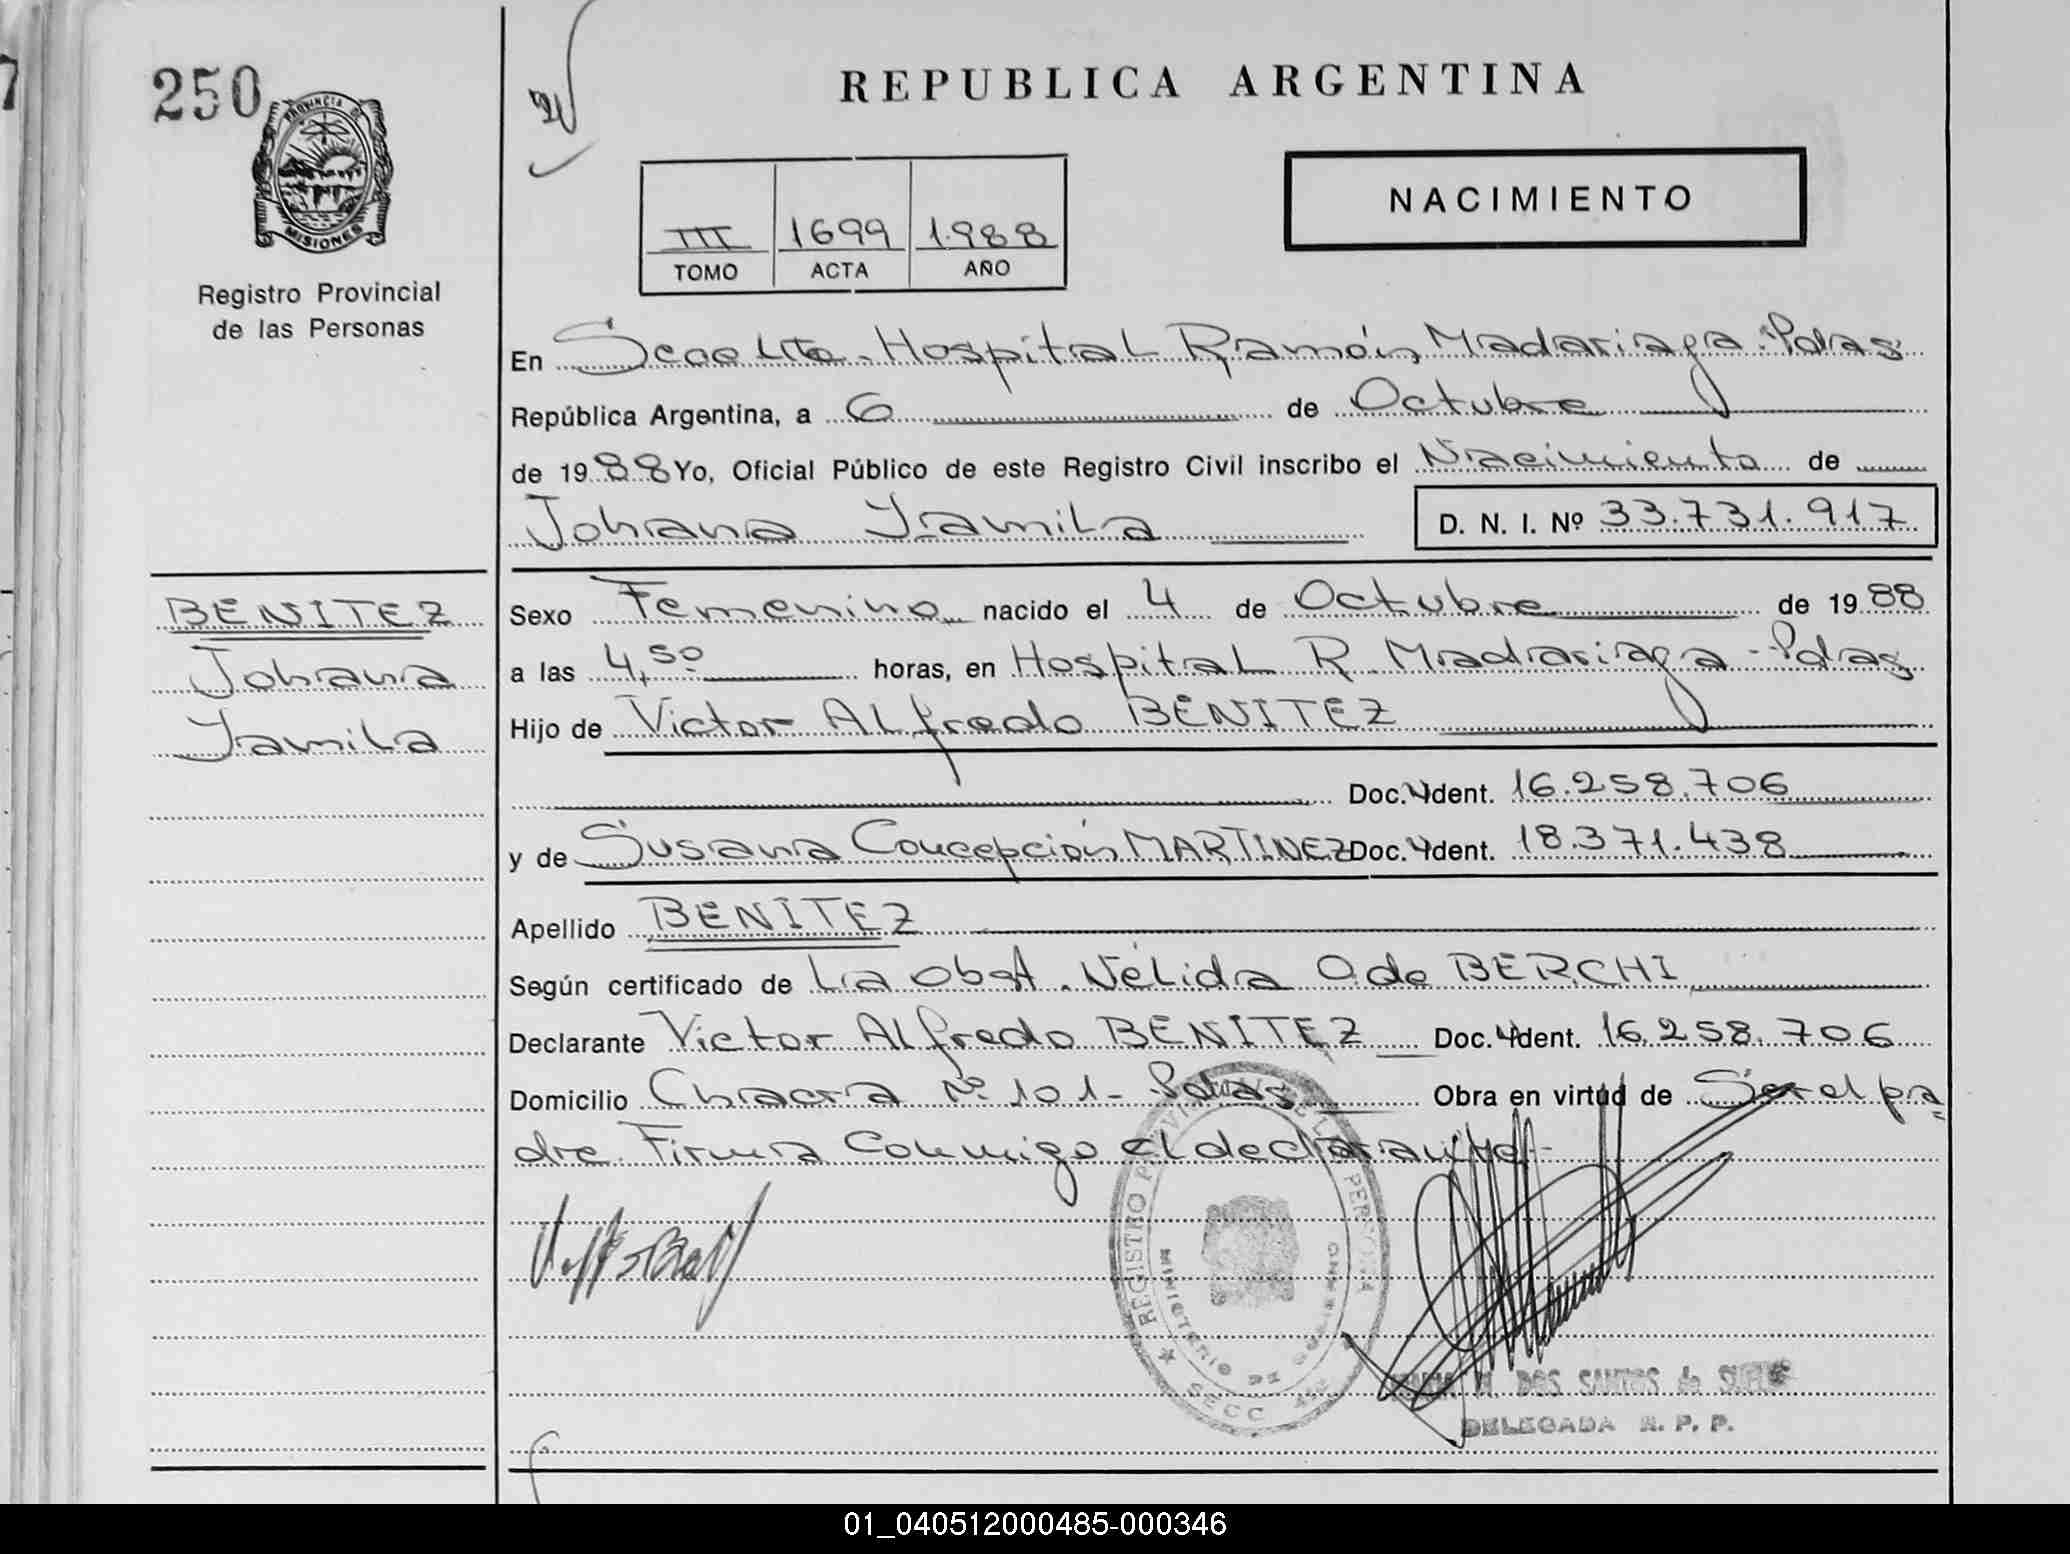 250
PROVINCIA DE
MISIONES
Registro Provincial
de las Personas
REPUBLICA ARGENTINA
NACIMIENTO
III 1699 1988
TOMO ACTA AÑO
En Hospital Ramón Madariaga-Pdas
República Argentina, a 6 de Octubre
de 1988 Yo, Oficial Público de este Registro Civil inscribo el Nacimiento de
Johana Yamila D. N. I. Nº 33.731.917
BENITEZ
Johana
Yamila
Sexo Femenino nacido el 4 de Octubre de 1988
a las 4,50 horas, en Hospital R. Madariaga-Pdas
Hijo de Victor Alfredo BENITEZ
Doc. Ident. 16.258.706
y de Susana Concepción MARTINEZ Doc. Ident. 18.371.438
Apellido BENITEZ
Según certificado de La Obst. Nélida O. de BERCHI
Declarante Victor Alfredo BENITEZ Doc. Ident. 16.258.706
Domicilio Chacra Nº 101- Pdas Obra en virtud de Ser el pa
dre. Firma Conmigo el declarante-
REGISTRO PERSONAS
MINISTERIO DE GOBIERNO
SECC
DOS SANTOS de
DELEGADA R. P. P.
01_040512000485-000346